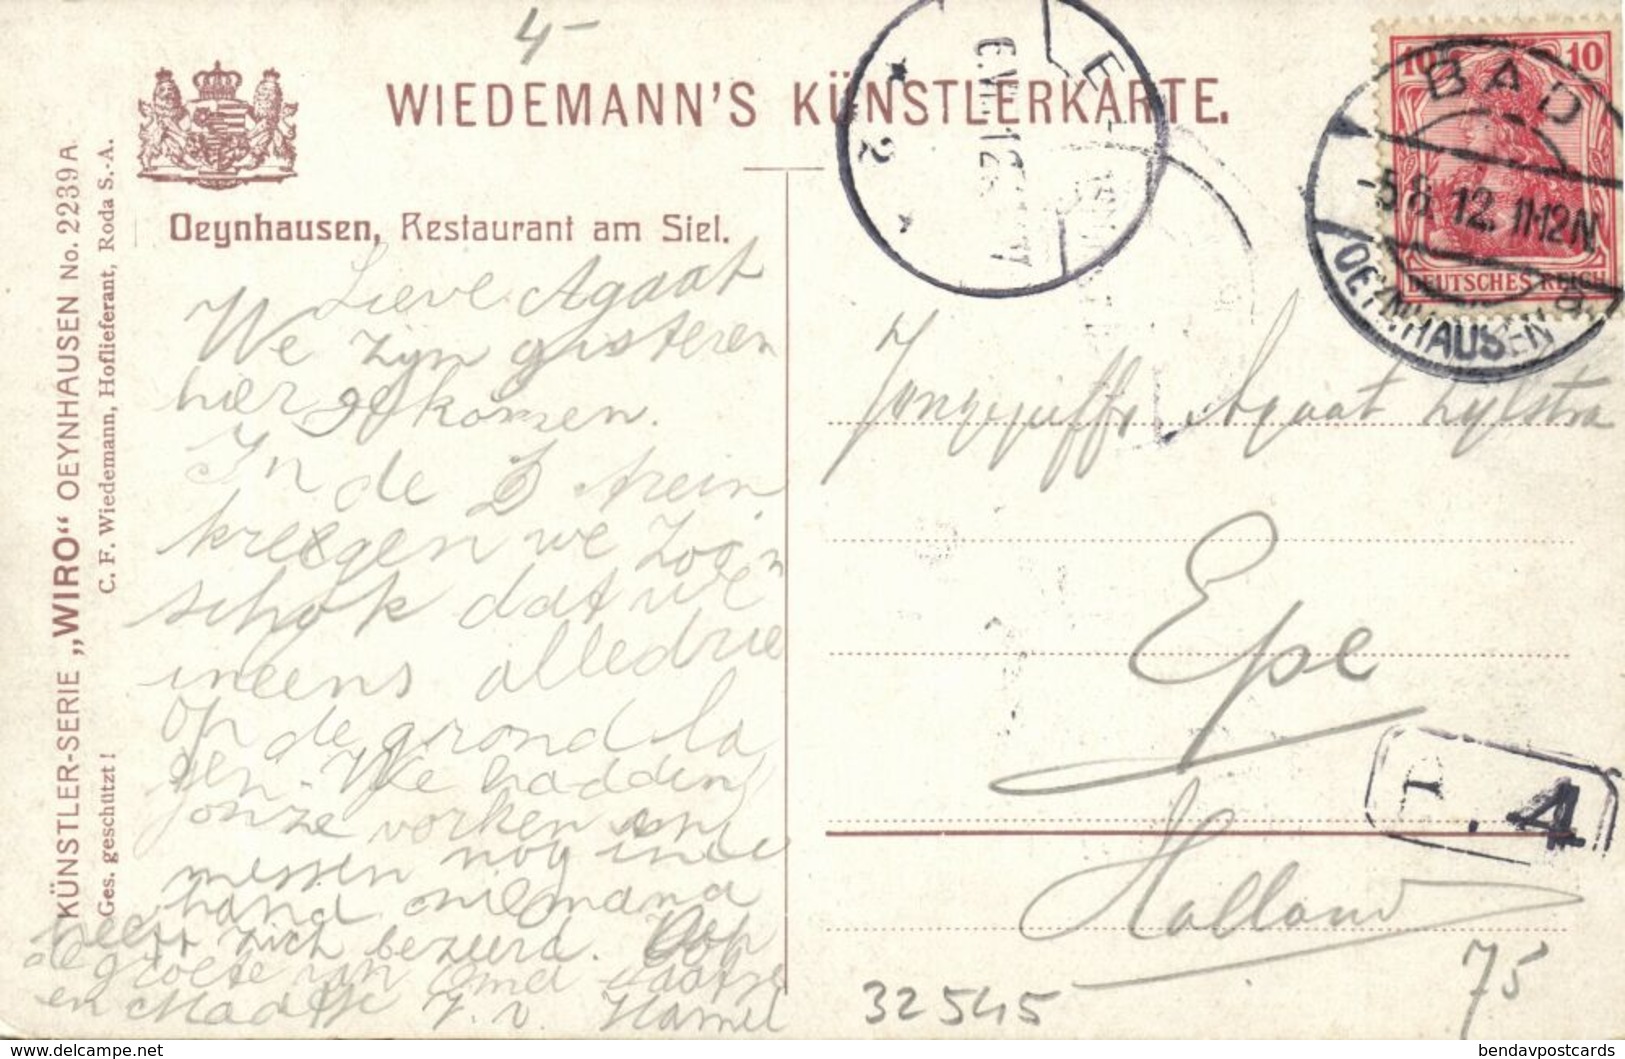 4-
WIEDEMANN'S KÜNSTLERKARTE.
Oeynhausen, Restaurant am Siel.
KÜNSTLER-SERIE „WIRO“ OEYNHAUSEN No. 2239A
C. F. Wiedemann, Hoflieferant, Roda S.-A.
Ges. geschützt!
2
10 10
DEUTSCHES REICH
BAD
-5.8.12. 11-12N.
OEYNHAUSEN
Lieve Agaat
We zijn gisteren
hier gekomen.
In de trein
kreegen we zoo'n
schok dat we
ineens alledrie
op de grond la
gen. We hadden
onze vorken en
messen nog in de
hand niemand
heeft zich bezeerd.
de groete van Oma
en
Agaat Zylstra
Epe
Holland
T
. 4
32545
75
bendavpostcards